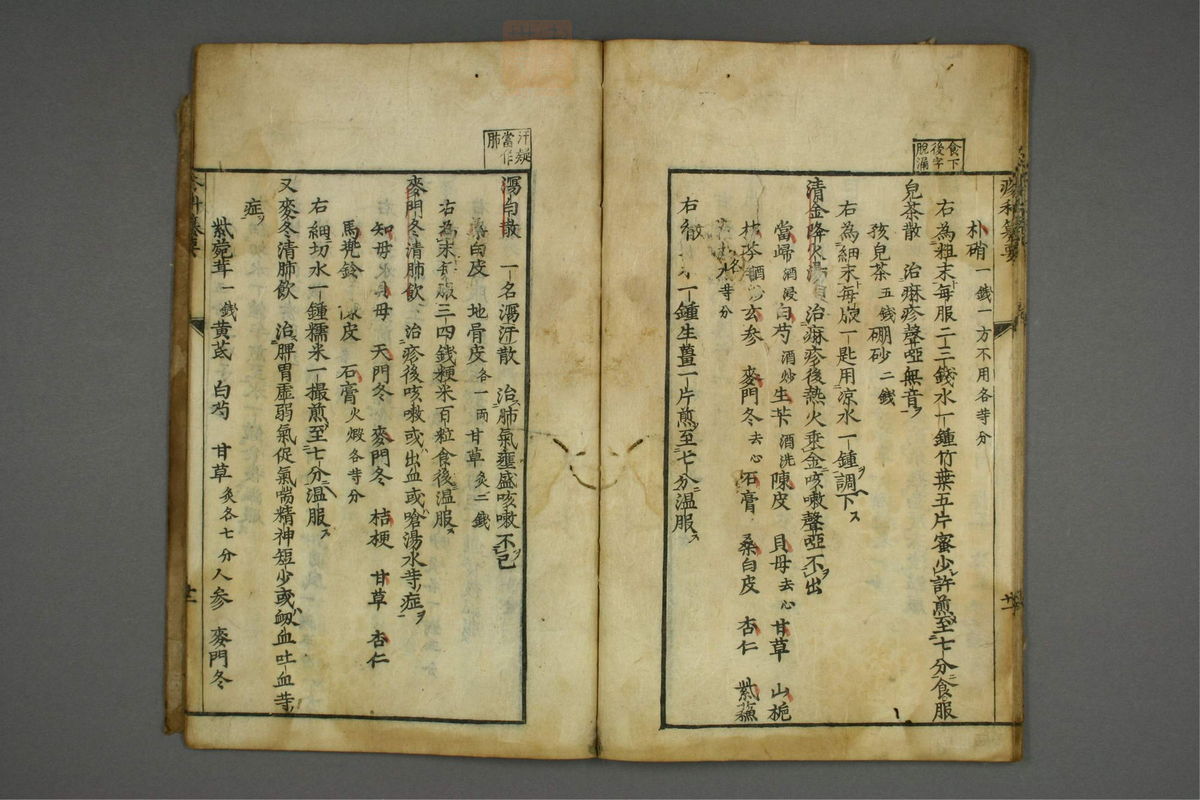 食下
後字
脫漏
朴硝一錢一方不用各等分
右為粗末每服二三錢水一鍾竹葉五片蜜少許煎至七分食服
兒茶散 治痳疹聲啞無音
孩兒茶五錢硼砂二錢
右為細末每服一匙用凉水一鍾調下
清金降火湯 治痳疹後熱火乗金咳嗽聲啞不出
當歸酒浸白芍酒炒生芐酒洗陳皮 貝母去心甘草 山梔
玄参 麥門冬去心石膏 桑白皮 杏仁 紫蘓
等分
右 一鍾生薑一片煎至七分温服
汗疑
當作
肺
瀉白散 一名瀉汗散 治肺氣壅盛咳嗽不已
桑白皮 地骨皮各一両甘草炙二錢
右為末每服三四錢粳米百粒食後温服
麥門冬清肺飲 治疹後咳嗽或出血或嗆湯水等症
知母 貝母 天門冬 麥門冬 桔梗 甘草 杏仁
馬兠鈴 陳皮 石膏火煅各等分
右細切水一鍾糯米一撮煎至七分温服
又麥冬清肺飲 治脾胃虚弱氣促氣喘精神短少或衂血吐血等
症
紫菀茸一錢黄芪 白芍 甘草炙各七分人参 麥門冬